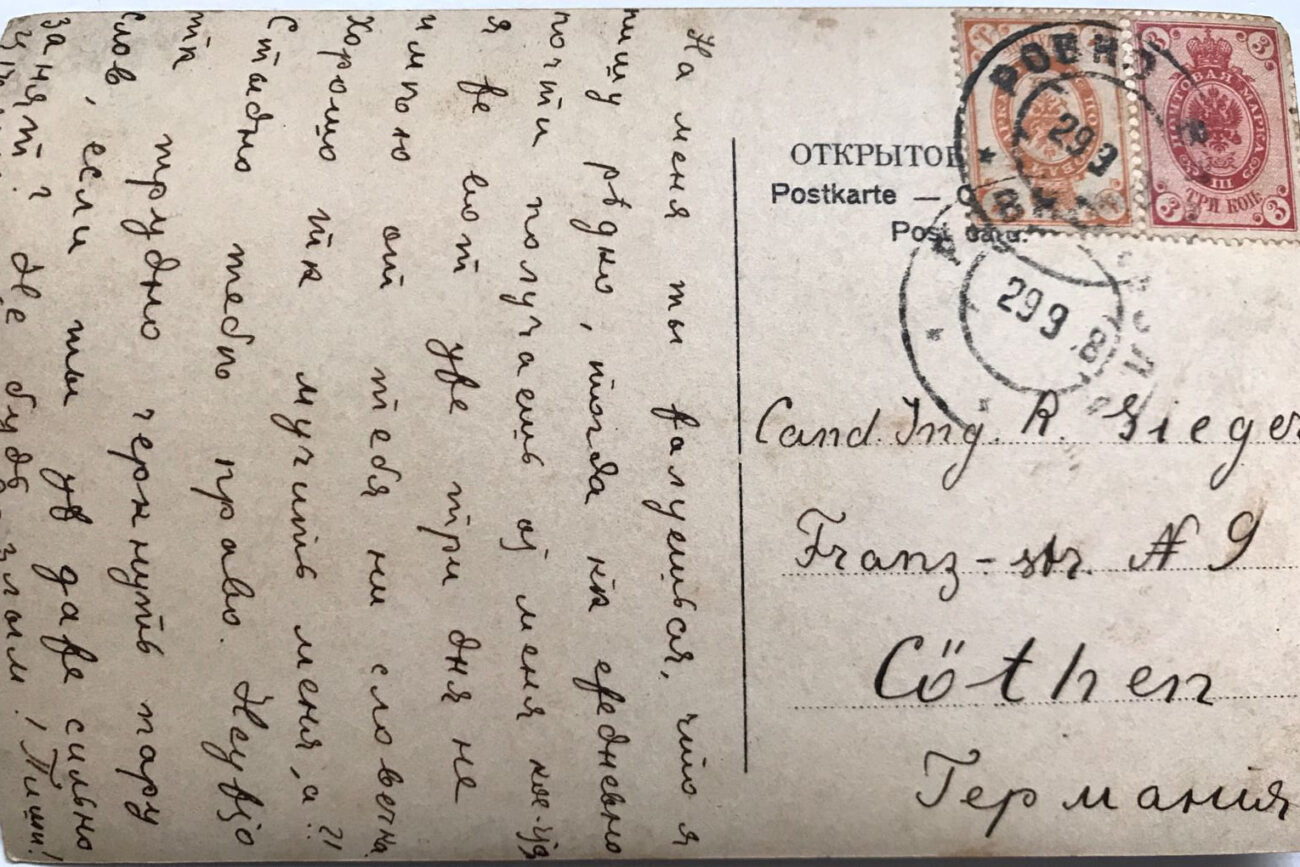 На меня ты жалуешься, что я
пишу рѣдко, тогда как ежедневно
почти получаешь от меня кое-что
я же вот уже три дня не
имѣю от тебя ни словечка
Хорошо так мучить меня, а?!
Стыдно тебѣ право. Неужто
так трудно черкнуть пару
слов, если ты уж даже сильно
занят? Не будь злым! Пиши!
ОТКРЫТОЕ
Postkarte —
Post card.
РОВНО
29 9
29 9 8
ПОЧТОВАЯ МАРКА
III
ТРИ КОП.
3 3 3
Cand. Ing. R. Gieger
Franz-str. N 9
Cöthen
Германия